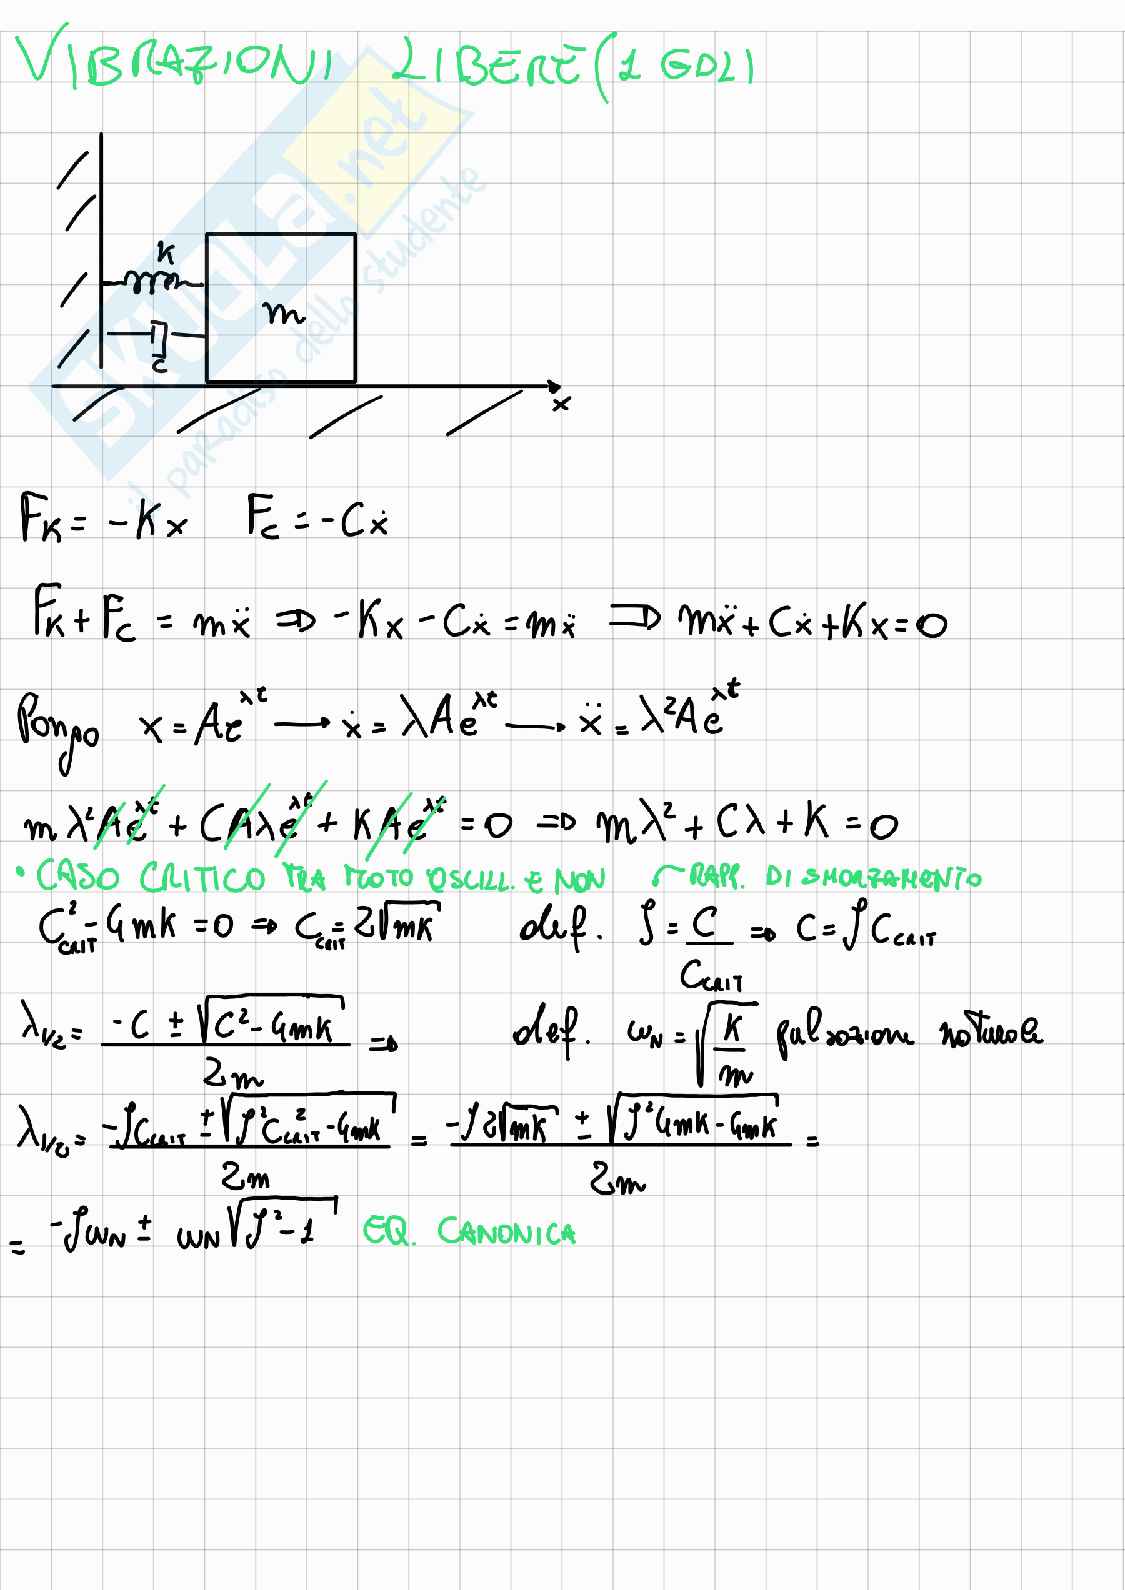 VIBRAZIONI LIBERE (1 GDL)
SKUOLA.net
il paradiso dello studente
K
m
c
x
F_K = -Kx   F_C = -Cẋ
F_K + F_C = mẍ ⇒ -Kx - Cẋ = mẍ ⇒ mẍ + Cẋ + Kx = 0
Pongo x = Ae^{λt} → ẋ = λAe^{λt} → ẍ = λ²Ae^{λt}
mλ²Ae^{λt} + CAλe^{λt} + KAe^{λt} = 0 ⇒ mλ² + Cλ + K = 0
• CASO CRITICO TRA MOTO OSCILL. E NON   RAPP. DI SMORZAMENTO
C²_CRIT - 4mK = 0 ⇒ C_CRIT = 2√(mK)   def. ζ = C/C_CRIT ⇒ C = ζC_CRIT
λ_{1/2} = (-C ± √(C² - 4mK))/2m ⇒   def. ω_N = √(K/m) pulsazione naturale
λ_{1/2} = (-ζC_CRIT ± √(ζ²C²_CRIT - 4mK))/2m = (-ζ2√(mK) ± √(ζ²4mK - 4mK))/2m =
= -ζω_N ± ω_N√(ζ² - 1)   EQ. CANONICA